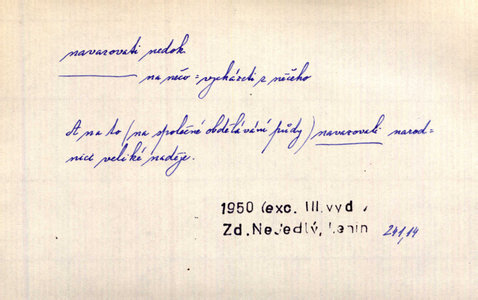 navazovati nedok.
na něco = vycházeti z něčeho
A na to (na společné obdělávání půdy) navazovali narod-
níci veliké naděje.
1950 (exc. III. vyd.
Zd. Nejedlý, Lenin 241,14